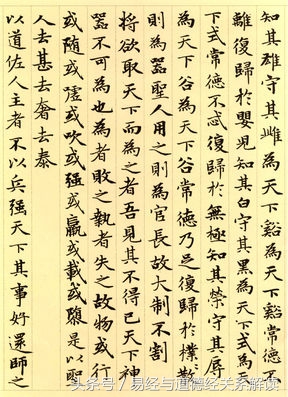 知其雄守其雌為天下谿為天下谿常德不
離復歸於嬰兒知其白守其黑為天下式為天
下式常德不忒復歸於無極知其榮守其辱
為天下谷為天下谷常德乃足復歸於樸散
則為器聖人用之則為官長故大制不割
將欲取天下而為之者吾見其不得已天下神
器不可為也為者敗之執者失之故物或行
或随或嘘或吹或强或羸或載或隳是以聖
人去甚去奢去泰
以道佐人主者不以兵强天下其事好還師之
头条号 / 易经与道德经关系解读